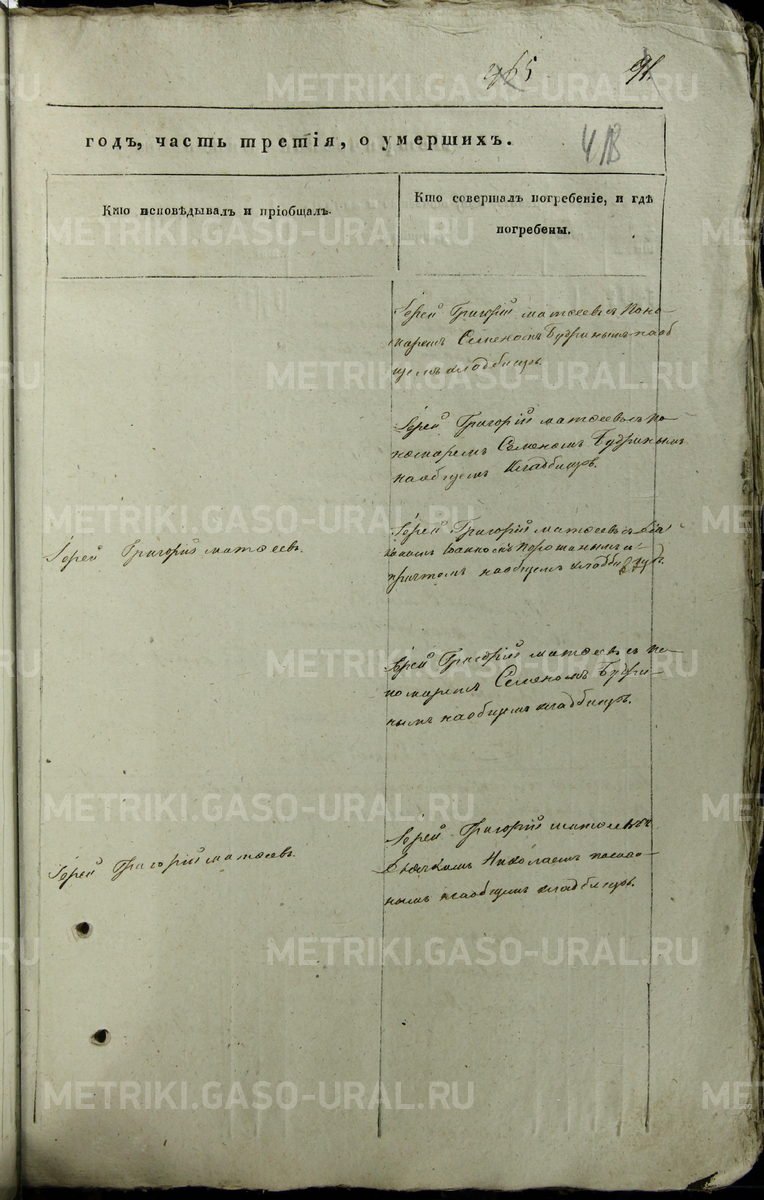 965 91.
годъ, часть третія, о умершихъ.
418
Кто исповѣдывалъ и пріобщалъ.
Кто совершалъ погребеніе, и гдѣ
погребены.
Іерей Григорій Матѳеевъ съ поно
маремъ Семеномъ Будринымъ на об
щемъ кладбищѣ.
Іерей Григорій Матѳеевъ съ по-
номаремъ Семеномъ Будринымъ
на общемъ кладбищѣ.
Іерей Григорій Матѳеевъ.
Іерей Григорій Матѳеевъ съ Діа
кономъ и
причтомъ на общемъ кладбищѣ.
Іерей Григорій Матѳеевъ съ по-
номаремъ Семеномъ Будри-
нымъ на общемъ кладбищѣ.
Іерей Григорій Матѳеевъ.
Іерей Григорій Матѳеевъ
Дьячкомъ Николаемъ
нымъ на общемъ кладбищѣ.
METRIKI.GASO-URAL.RU